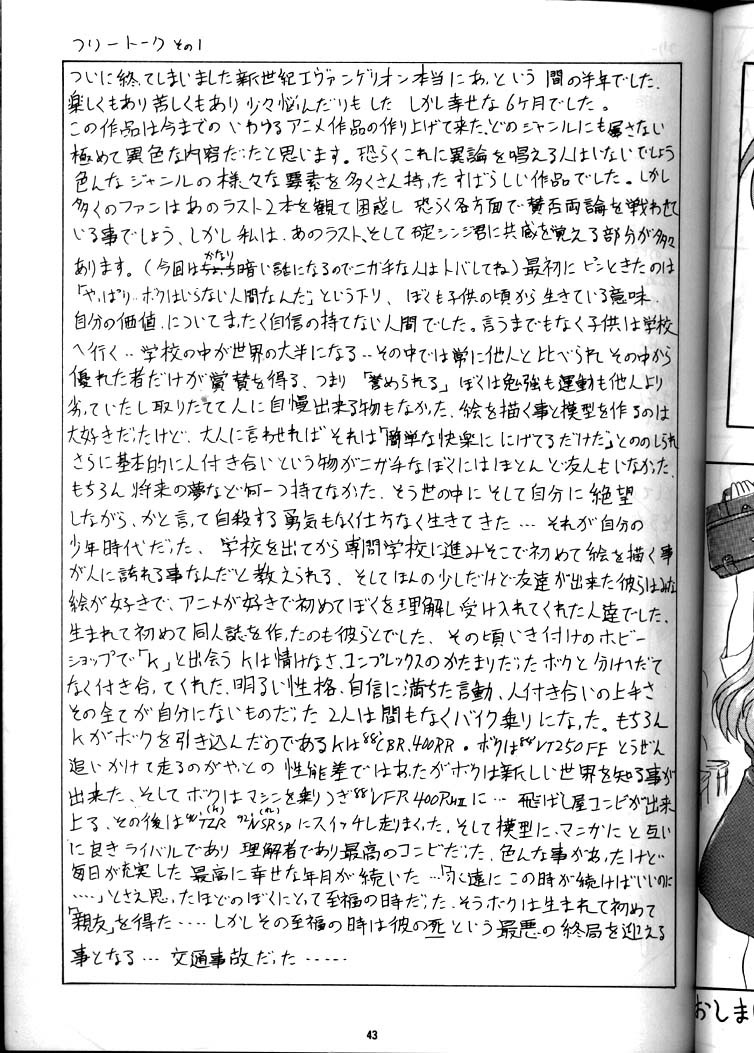 フリートーク その1
ついに終ってしまいました新世紀エヴァンゲリオン本当にあっという間の半年でした、
楽しくもあり苦しくもあり少々悩んだりもした しかし幸せな6ヶ月でした。
この作品は今までのいわゆるアニメ作品の作り上げて来た、どのジャンルにも属さない
極めて異色な内容だったと思います。恐らくこれに異論を唱える人はいないでしょう
色んなジャンルの様々な要素を多くさん持ったすばらしい作品でした。しかし
多くのファンはあのラスト2本を観て困惑し 恐らく各方面で賛否両論を戦わせて
いる事でしょう、しかし私は、あのラスト、そして碇シンジ君に共感を覚える部分が多々
あります。(今回はかなり暗い話になるのでニガ手な人はトバしてね)最初にピンときたのは
「やっぱりボクはいらない人間なんだ」という下り、ぼくも子供の頃から生きている意味、
自分の価値、についてまったく自信の持てない人間でした。言うまでもなく子供は学校
へ行く‥学校の中が世界の大半になる‥その中では常に他人と比べられその中から
優れた者だけが賞賛を得る、つまり「誉められる」ぼくは勉強も運動も他人より
劣っていたし取りたてて人に自慢出来る物もなかった、絵を描く事と模型を作るのは
大好きだったけど、大人に言わせればそれは「簡単な快楽ににげてるだけだ」とののしられ
さらに基本的に人付き合いという物がニガ手なぼくにはほとんど友人もいなかった、
もちろん将来の夢など何一つ持てなかった、そう世の中にそして自分に絶望
しながら、かと言って自殺する勇気もなく仕方なく生きてきた…それが自分の
少年時代だった、学校を出てから専問学校に進みそこで初めて絵を描く事
が人に誇れる事なんだと教えられる、そしてほんの少しだけど友達が出来た彼らはみな
絵が好きで、アニメが好きで初めてぼくを理解し受け入れてくれた人達でした、
生まれて初めて同人誌を作ったのも彼らとでした、その頃いき付けのホビー
ショップで「K」と出会うKは情けなさ、コンプレックスのかたまりだったボクと分けへだて
なく付き合ってくれた、明るい性格、自信に満ちた言動、人付き合いの上手さ
その全てが自分にないものだった 2人は間もなくバイク乗りになった。もちろん
Kがボクを引き込んだのであるKは'88CBR400RR。ボクは'88VT250FE とうぜん
追いかけて走るのがやっとの 性能差ではあったがボクは新しい世界を知る事が
出来た、そしてボクはマシンを乗りつぎ'88VFR400RⅢに…飛ばし屋コンビが出来
上る、その後は TZR(K) NSRSP(オレ)にスイッチし走りまくった、そして模型に、マニアに と互い
に良きライバルであり 理解者であり最高のコンビだった、色んな事があったけど
毎日が充実した 最高に幸せな年月が続いた…「永遠にこの時が続けばいいのに
……」とさえ思ったほどのぼくにとって至福の時だった、そうボクは生まれて初めて
「親友」を得た……しかしその至福の時は彼の死という最悪の終局を迎える
事となる…交通事故だった……
43
おしまい